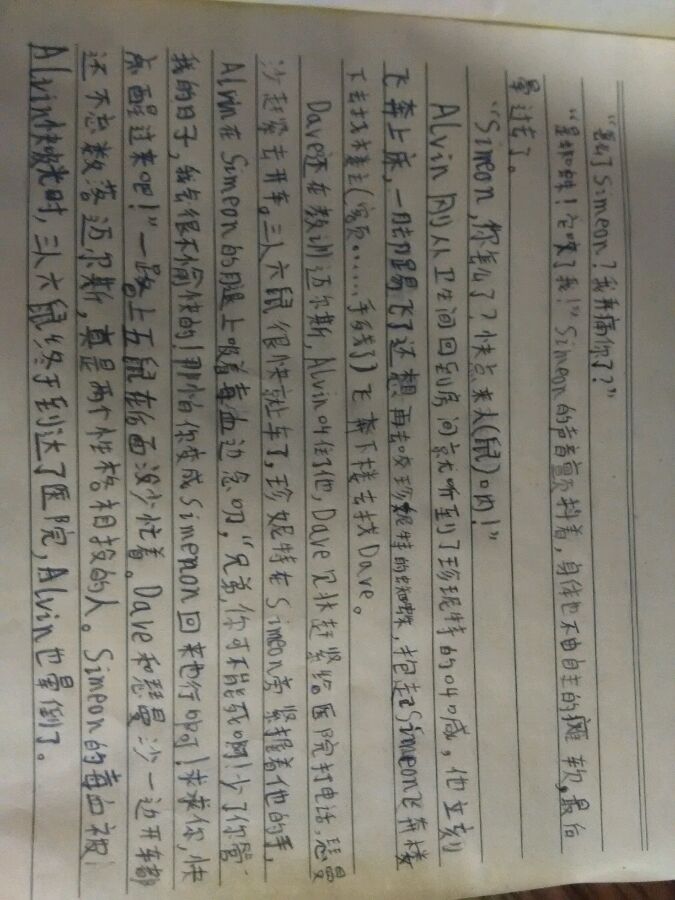 "怎么了Simeon？我弄痛你了？"
"是蜘蛛！它咬了我！"Simeon的声音颤抖着，身体也不由自主的瘫软，最后
晕过去了。
"Simeon，你怎么了？快点来人(鼠)啊！"
Alvin刚从卫生间回到房间就听到了珍妮特的呼喊，他立刻
飞奔上床，一脚踢飞了还想再去咬珍妮特的蜘蛛，抱起Simeon飞奔楼
下去找
飞奔下楼去找Dave。
Dave还在教训迈尔斯，Alvin叫住了他，Dave见状赶紧给医院打电话，
沙赶紧去开车。三人六鼠很快就上车了，珍妮特在Simeon旁紧握着他的手，
Alvin在Simeon的腿上吸着毒血边念叨，"兄弟，你可不能死啊！少了你管
我的日子，我会很不愉快的！哪怕你变成Simenon回来也行啊！求求你，快
点醒过来吧！"一路上五鼠在后面没少忙着。Dave和 曼沙一边开车都
还不忘数落迈尔斯，真是两个性格相投的人。Simeon的毒血被
Alvin快吸光时，三人六鼠终于到达了医院，Alvin也晕倒了。